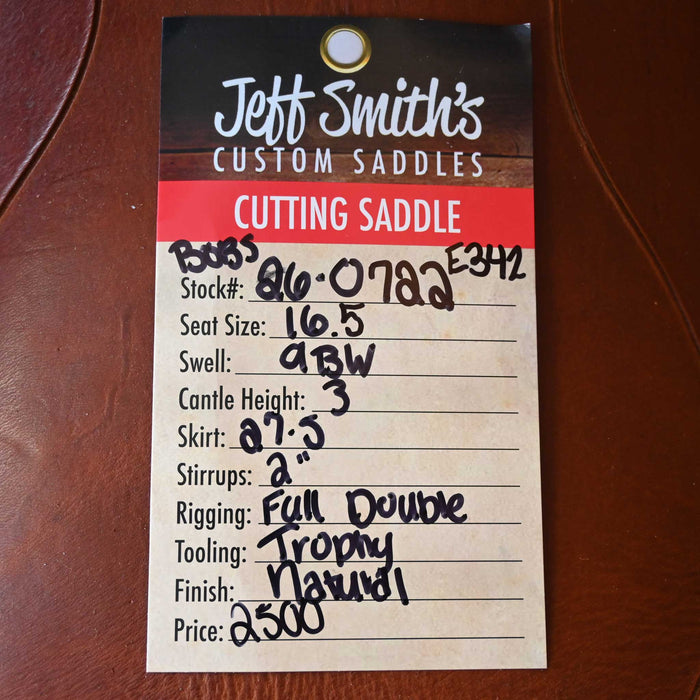 Jeff Smith's
CUSTOM SADDLES
CUTTING SADDLE
BOBS
Stock#: 26-0722 E342
Seat Size: 16.5
Swell: 9BW
Cantle Height: 3
Skirt: 27.5
Stirrups: 2"
Rigging: Full Double
Tooling: Trophy
Finish: Natural
Price: 2500